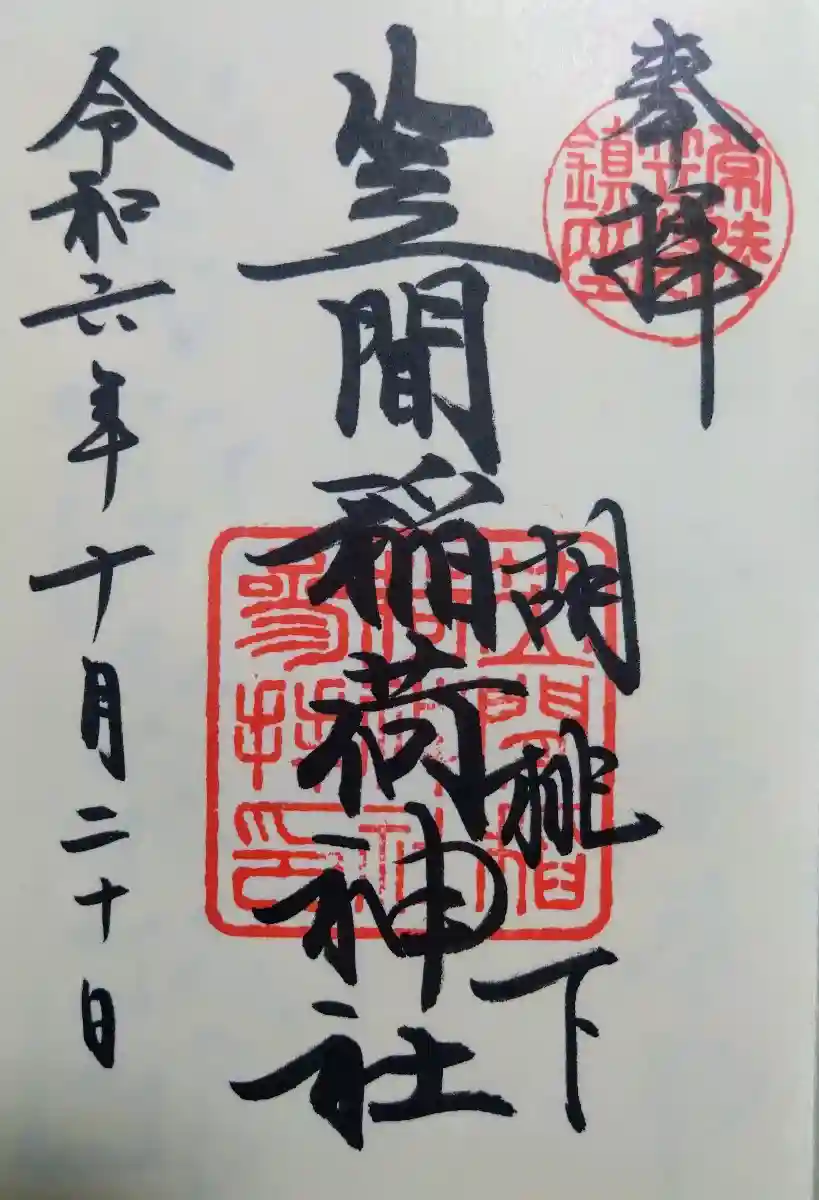 奉拝
常陸
笠間
鎮座
胡桃下
笠間稲荷神社
笠間稲
荷神社
参拝印
令和六年十月二十日